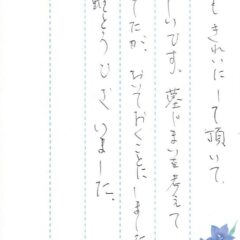 もきれいにして頂いて、
しいです。墓じまいを考えて
てたが、おいておくことにしました
難とうございました。